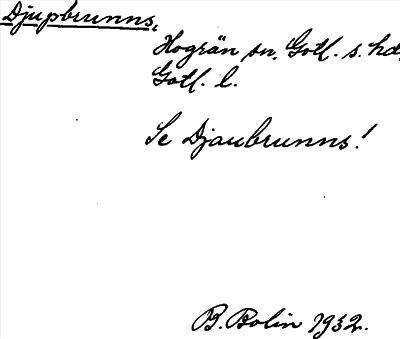 Djupbrunns,
Hogrän sn, Gotl. s. hd,
Gotl. l.
Se Djaubrunns!
B. Bolin 1932.